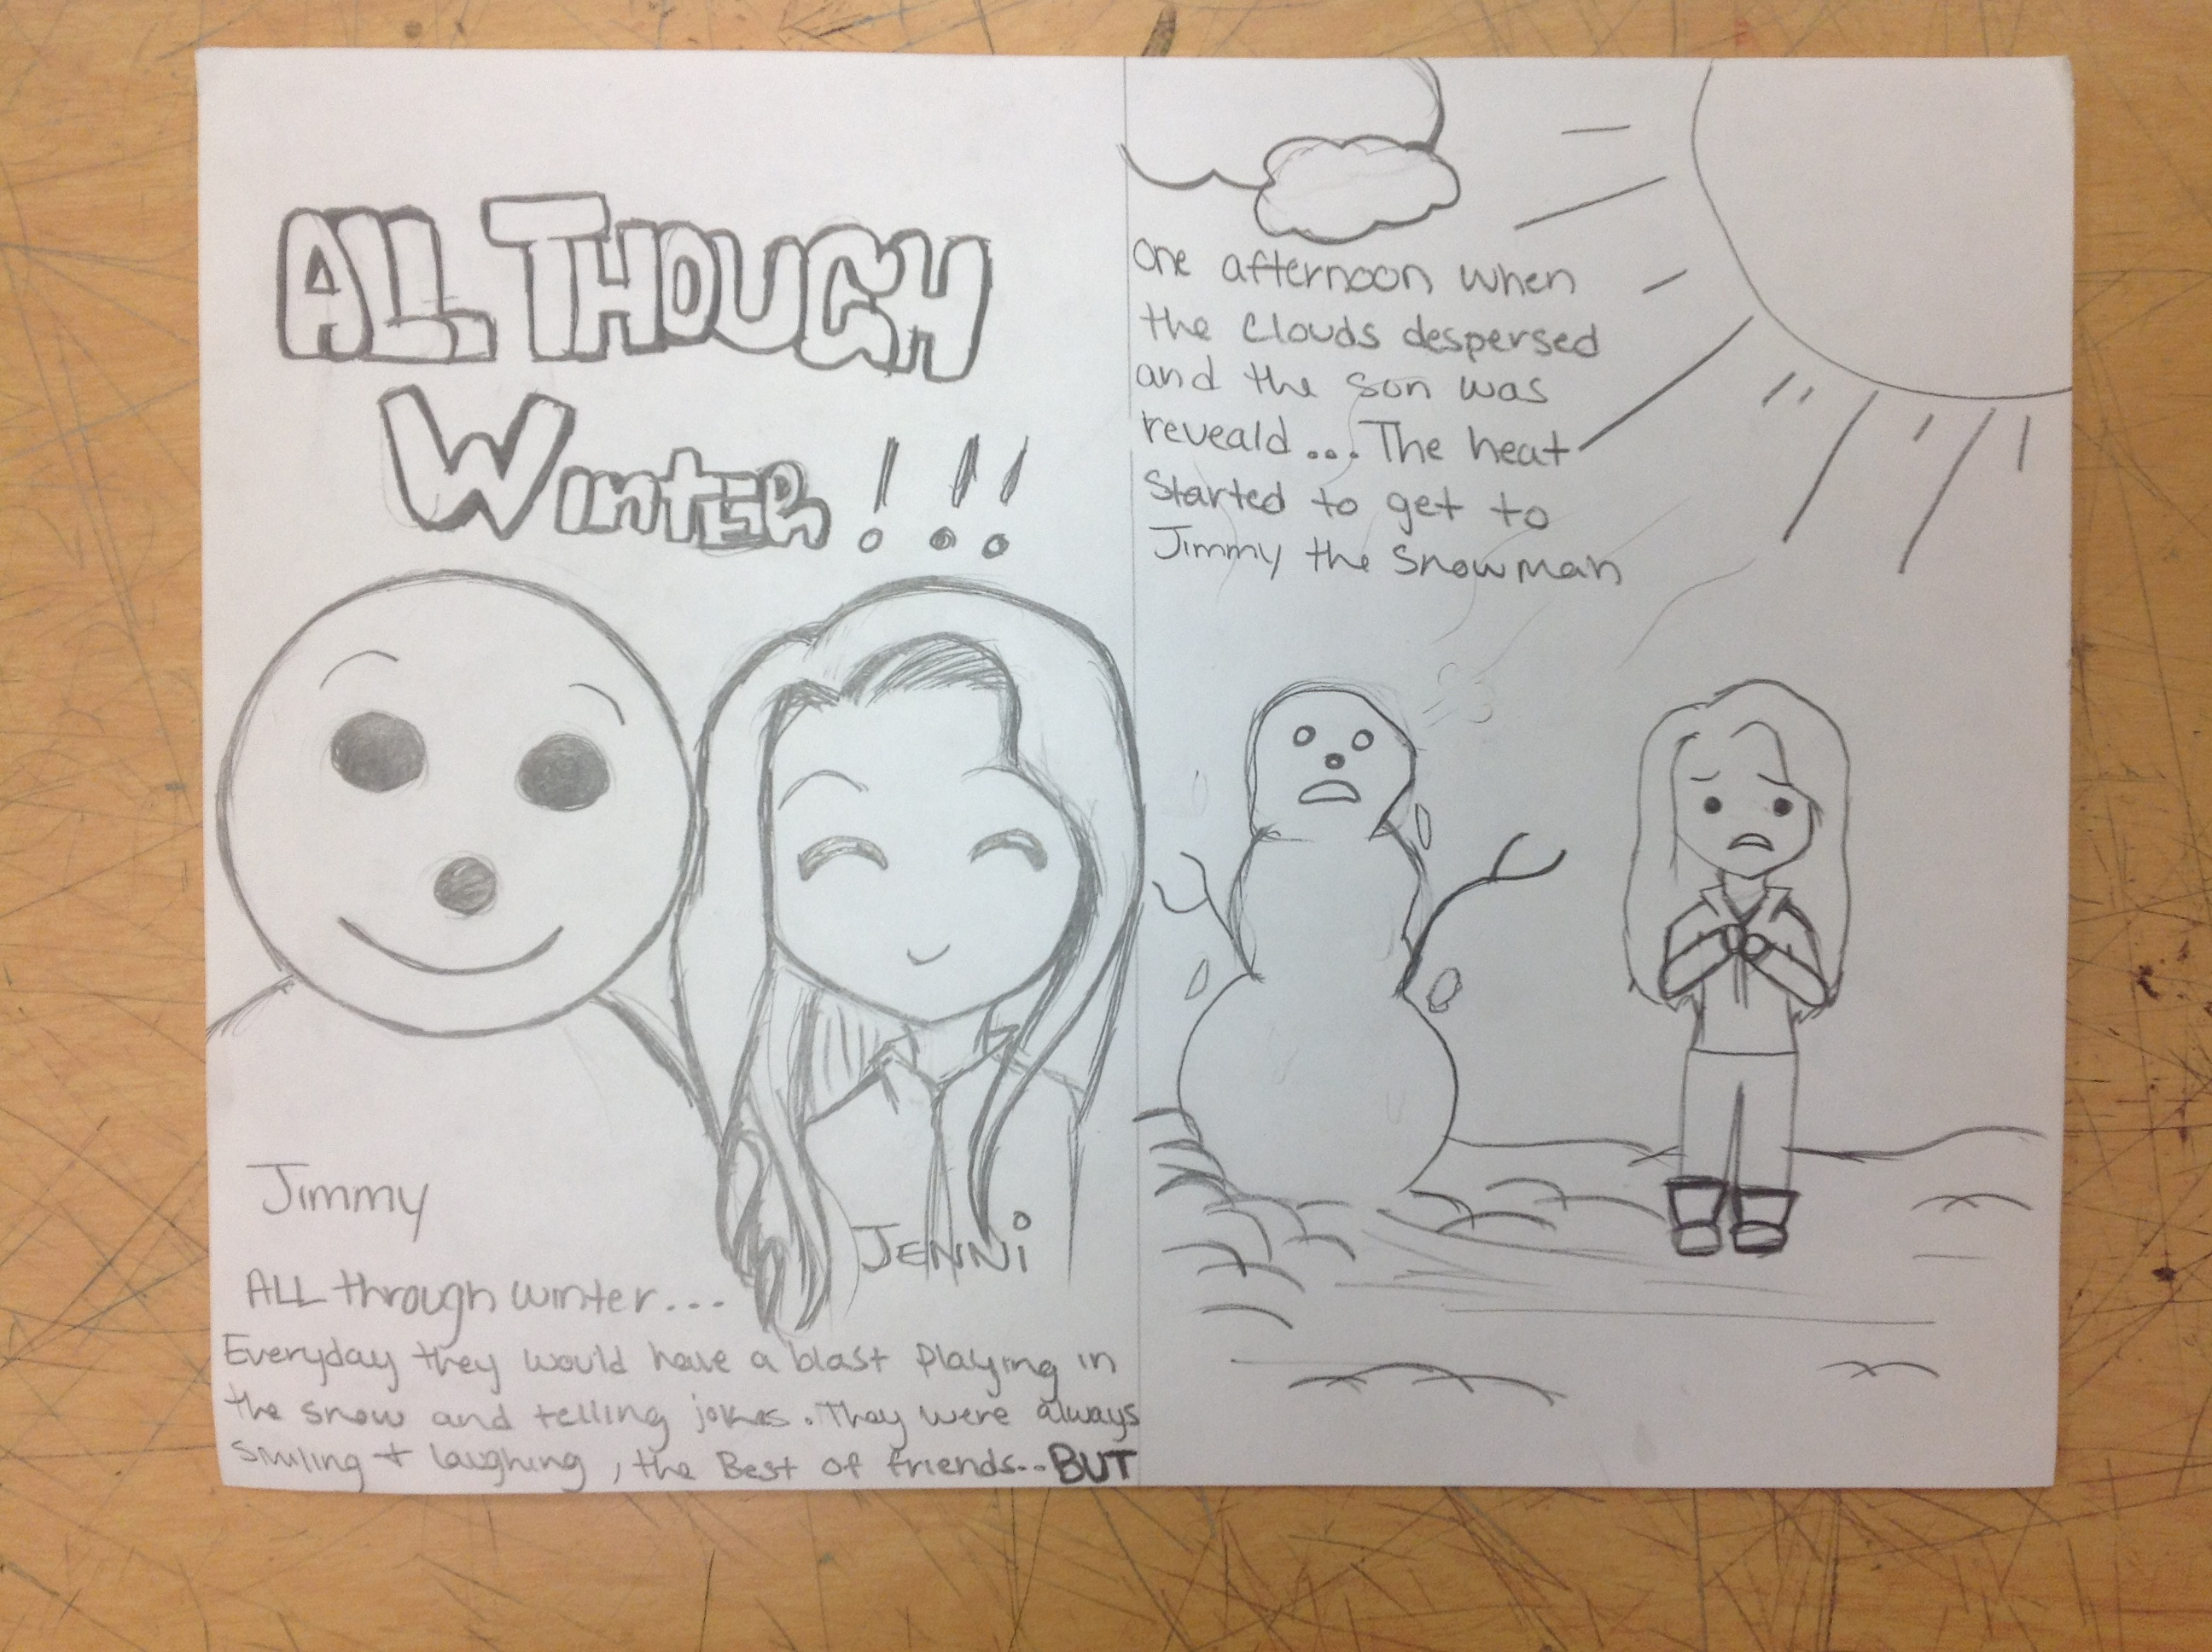 ALL THOUGH
WINTER!!!
Jimmy
JENNi
ALL through winter...
Everyday they would have a blast playing in
the snow and telling jokes. They were always
smiling + laughing, the Best of friends... BUT
One afternoon when
the clouds despersed
and the son was
reveald... The heat
started to get to
Jimmy the snowman